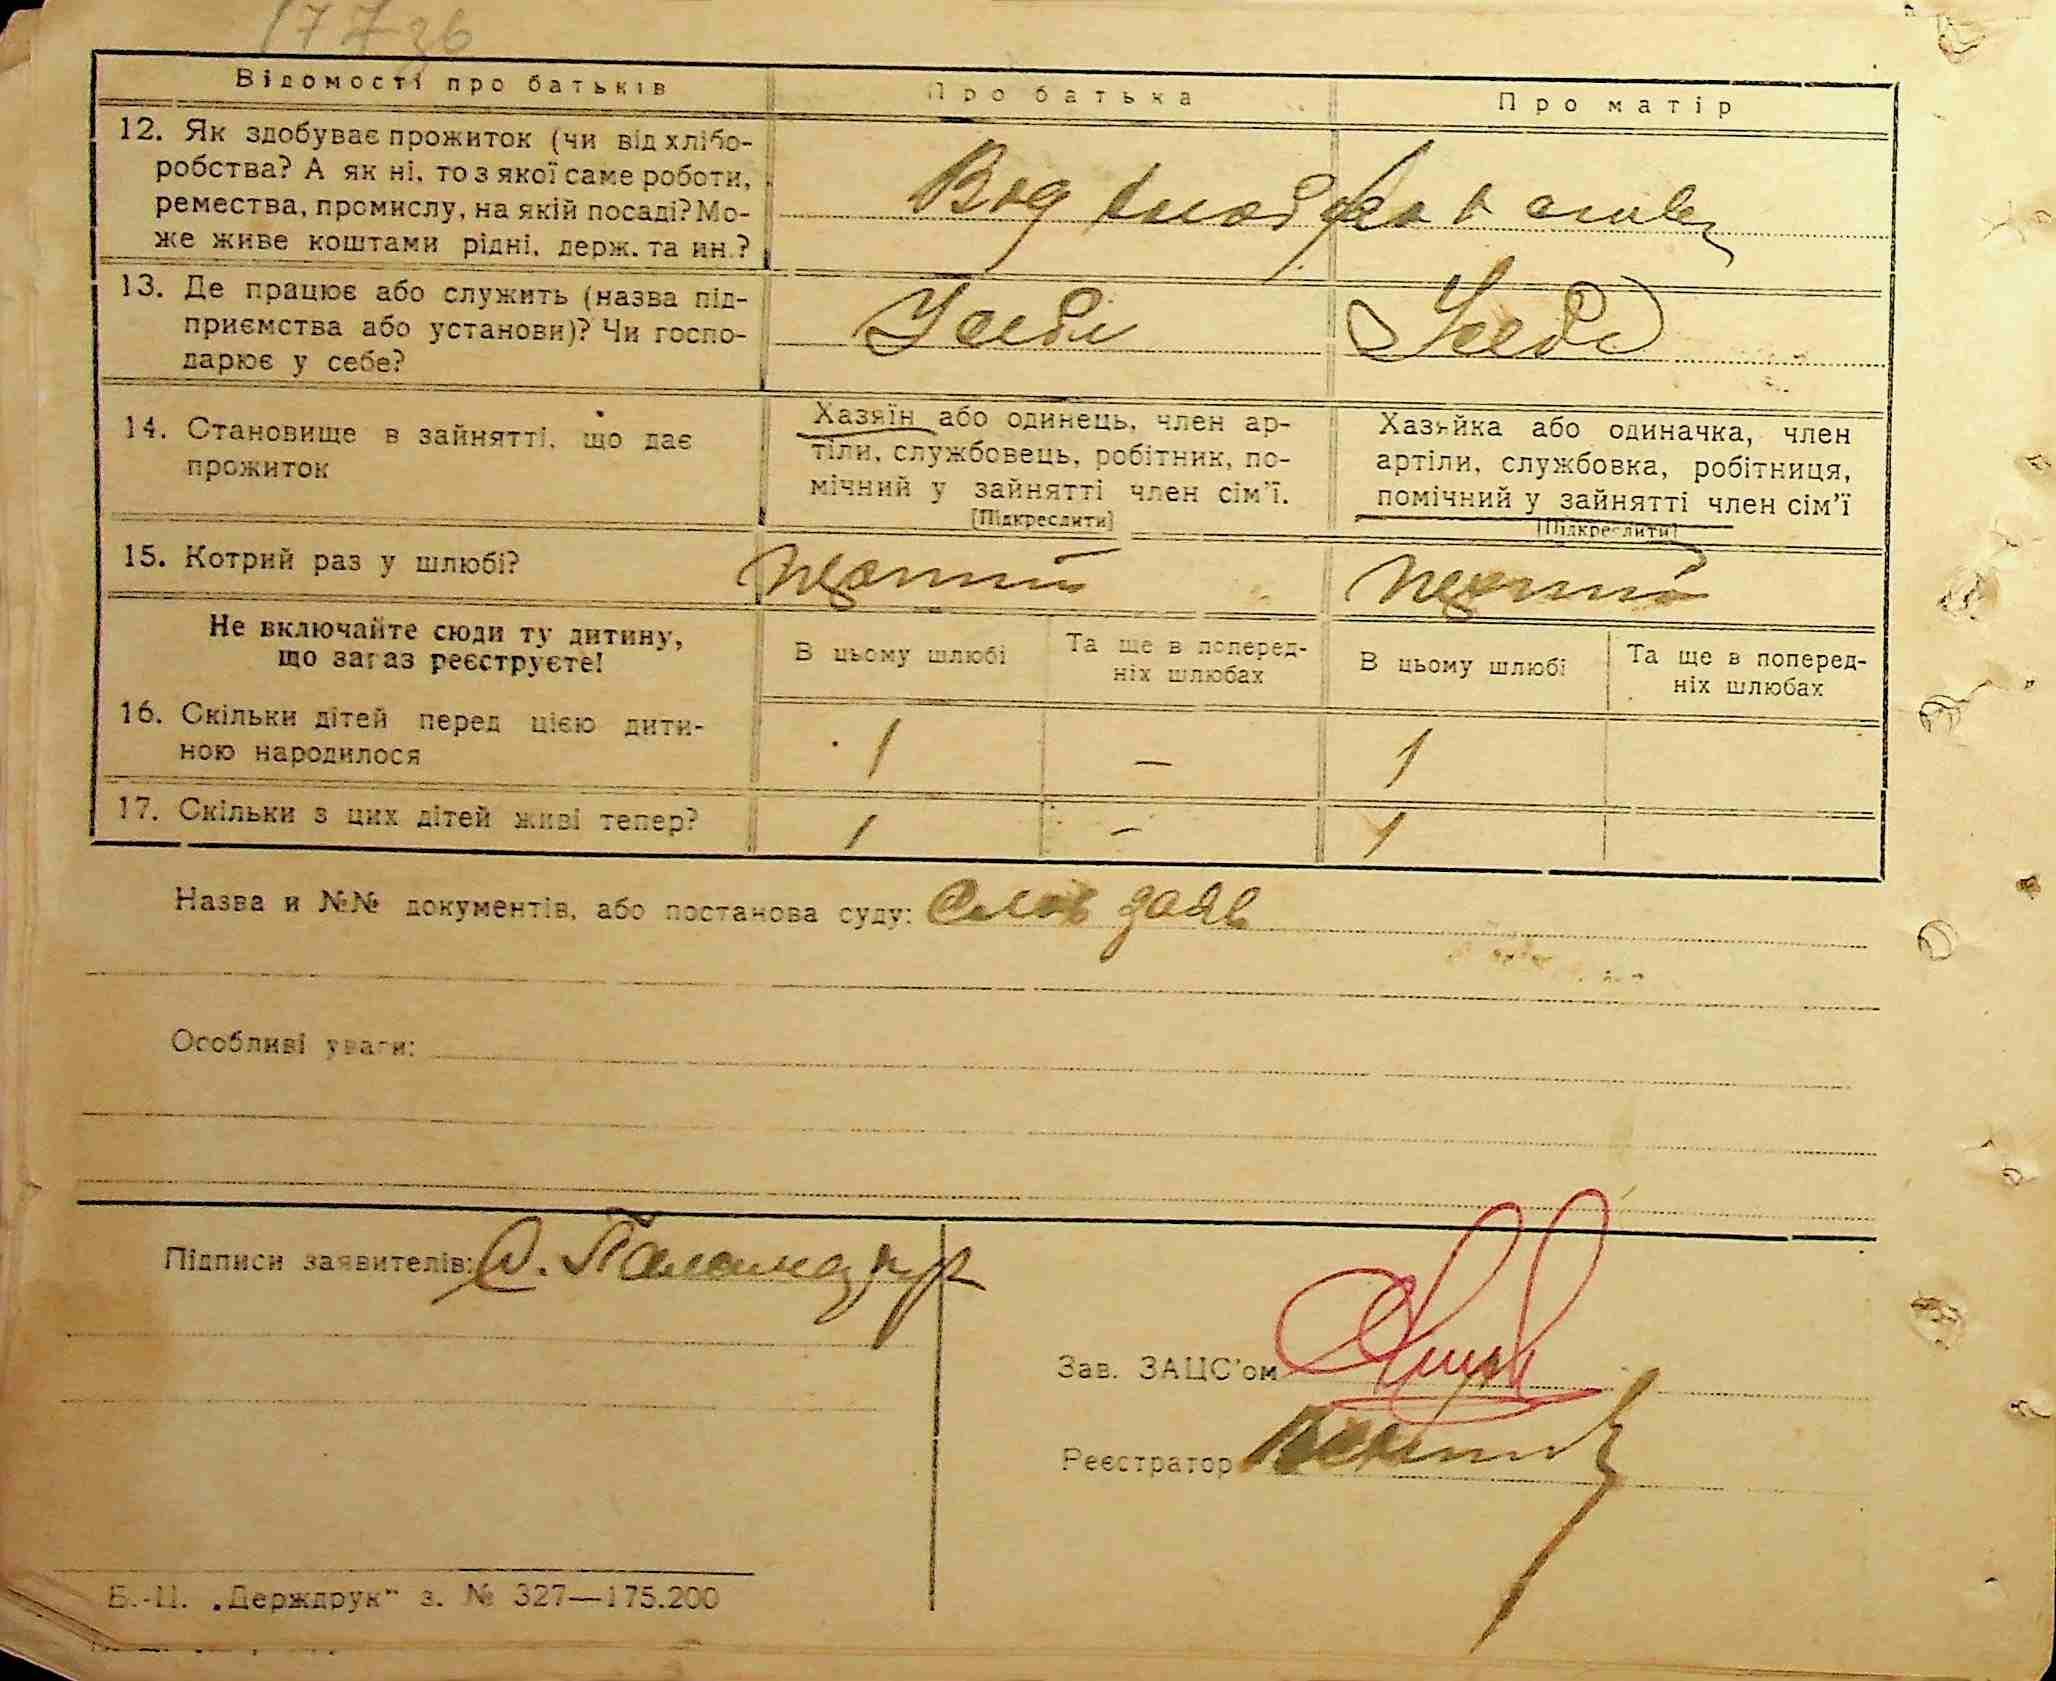 177зв
Відомості про батьків
Про батька
Про матір
12. Як здобуває прожиток (чи від хлібо-
робства? А як ні, то з якої саме роботи,
ремества, промислу, на якій посаді? Мо-
же живе коштами рідні, держ. та ин.?
Від хлібороб
13. Де працює або служить (назва під-
приємства або установи)? Чи госпо-
дарює у себе?
У себе
У себе
14. Становище в зайнятті, що дає
прожиток
Хазяїн або одинець, член ар-
тіли, службовець, робітник, по-
мічний у зайнятті член сім'ї.
[Підкреслити]
Хазяйка або одиначка, член
артіли, службовка, робітниця,
помічний у зайнятті член сім'ї
[Підкреслити]
15. Котрий раз у шлюбі?
перший
перший
Не включайте сюди ту дитину,
що зараз реєструєте!
В цьому шлюбі
Та ще в поперед-
ніх шлюбах
В цьому шлюбі
Та ще в поперед-
ніх шлюбах
16. Скільки дітей перед цією дити-
ною народилося
1
—
1
17. Скільки з цих дітей живі тепер?
1
-
1
Назва и №№ документів, або постанова суду: Слов заяв
Особливі уваги:
Підписи заявителів: С. Паламарчук
Зав. ЗАЦС'ом
Реєстратор
Б.-Ц. „Держдрук" з. № 327—175.200